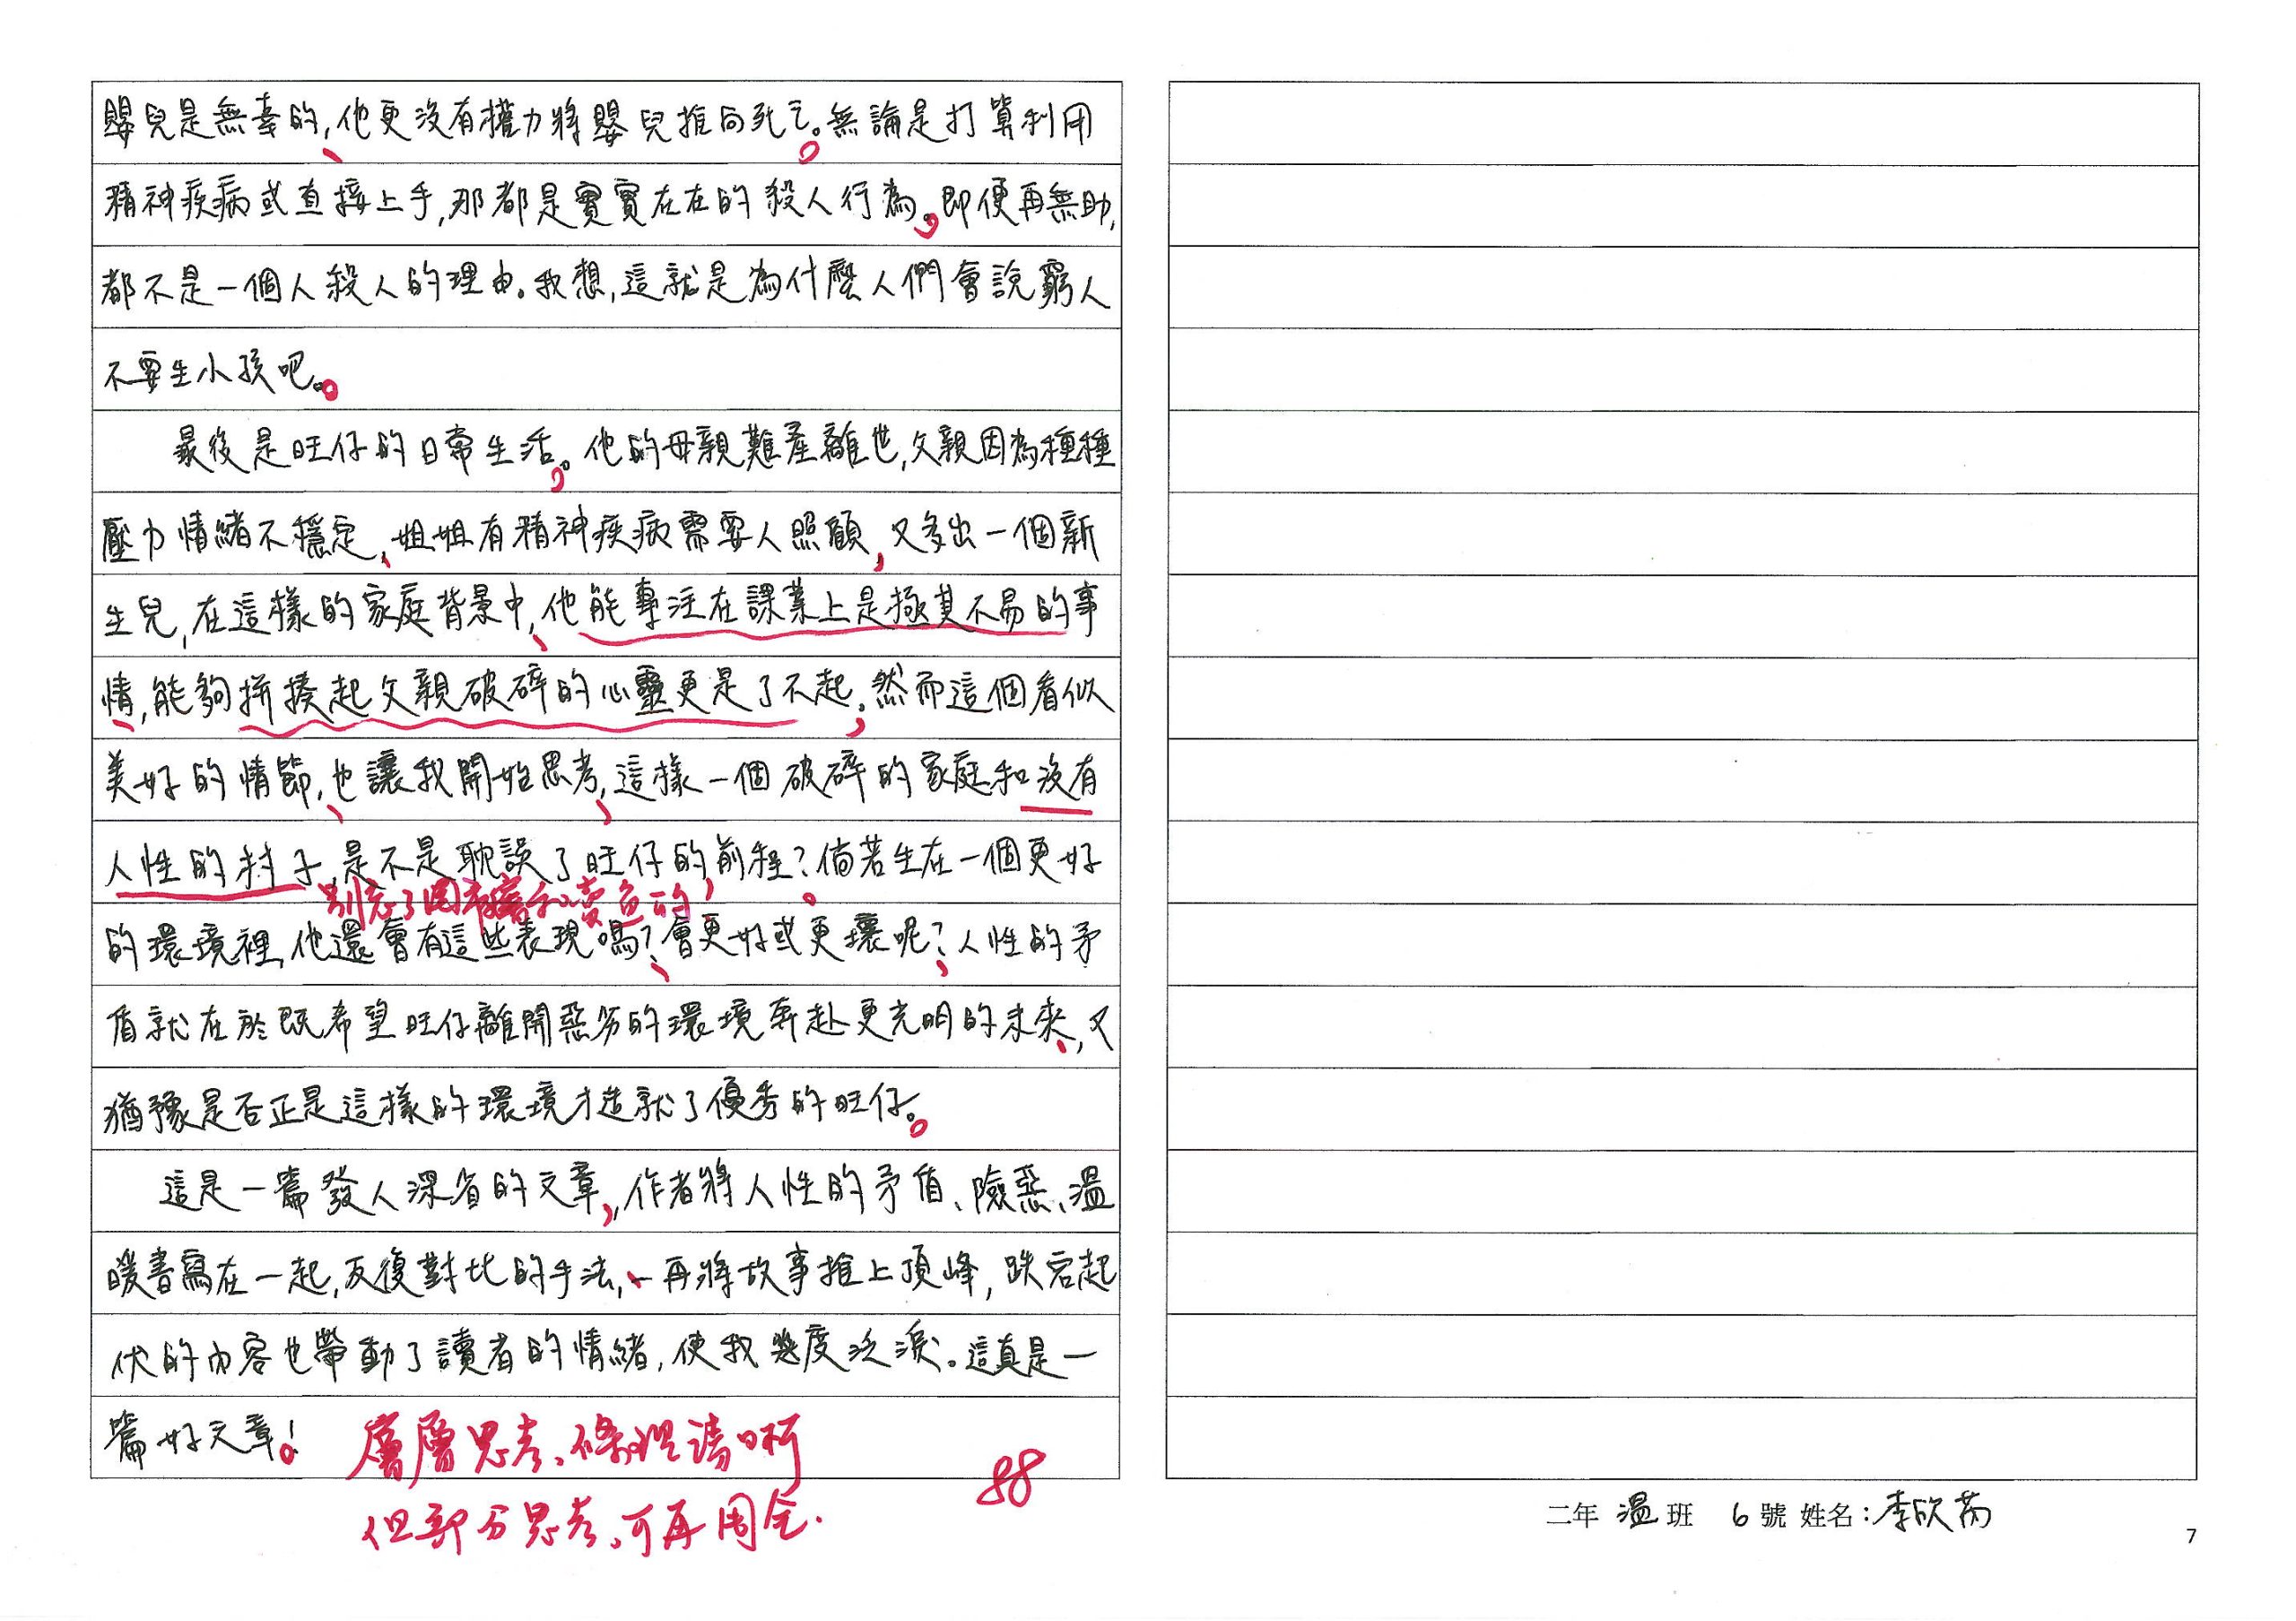 嬰兒是無辜的,他更沒有權力將嬰兒推向死亡。無論是打算利用
精神疾病或直接上手,那都是實實在在的殺人行為。即便再無助,
都不是一個人殺人的理由。我想,這就是為什麼人們會說窮人
不要生小孩吧。
最後是旺仔的日常生活。他的母親難產離世,父親因為種種
壓力情緒不穩定,姐姐有精神疾病需要人照顧,又多出一個新
生兒,在這樣的家庭背景中,他能專注在課業上是極其不易的事
情,能夠拼揍起父親破碎的心靈更是了不起。然而這個看似
美好的情節,也讓我開始思考,這樣一個破碎的家庭和沒有
人性的村子,是不是耽誤了旺仔的前程?倘若生在一個更好
別忘了 和賣魚的
的環境裡,他還會有這些表現嗎?會更好或更壞呢?人性的矛
盾就在於既希望旺仔離開惡劣的環境奔赴更光明的未來,又
猶豫是否正是這樣的環境才造就了優秀的旺仔。
這是一篇發人深省的文章,作者將人性的矛盾、險惡、溫
暖書寫在一起,反復對比的手法,一再將故事推上頂峰,跌宕起
伏的內容也帶動了讀者的情緒,使我幾度泛淚。這真是一
篇好文章!
層層思考、條理清晰
但部分思考,可再周全.
88
二年 溫 班 6 號 姓名:李欣芮
7